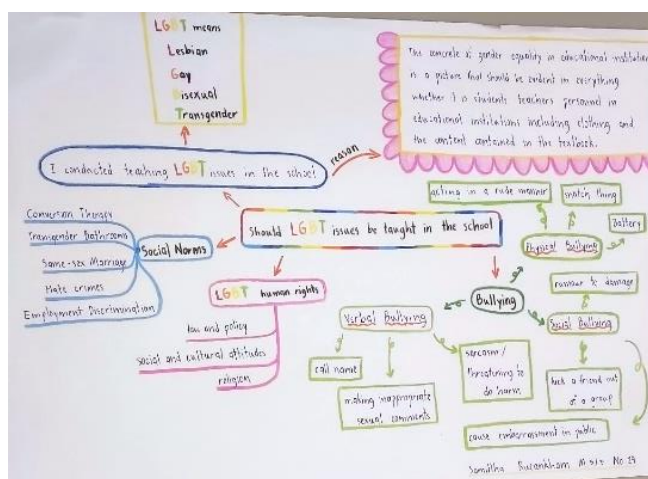 LGBT means
Lesbian
Gay
Bisexual
Transgender
The concrete of gender equality in educational institution
is a picture that should be evident in everything
whether is students teachers personnel in
educational institutions including clothing and
the content contained in the textbook.
reason
I conducted teaching LGBT issues in the school
should LGBT issues be taught in the school
Social Norms
Conversion Therapy
Transgender Bathrooms
Same-sex Marriage
Hate crimes
Employment Discrimination
LGBT human rights
law and policy
social and cultural attitudes
religion
Bullying
Physical Bullying
acting in a rude manner
snatch thing
battery
Verbal Bullying
call name
making inappropriate
sexual comments
sarcasm /
threatening to
do harm
Social Bullying
rumour to damage
kick a friend out
of a group
cause embarrassment in public
No